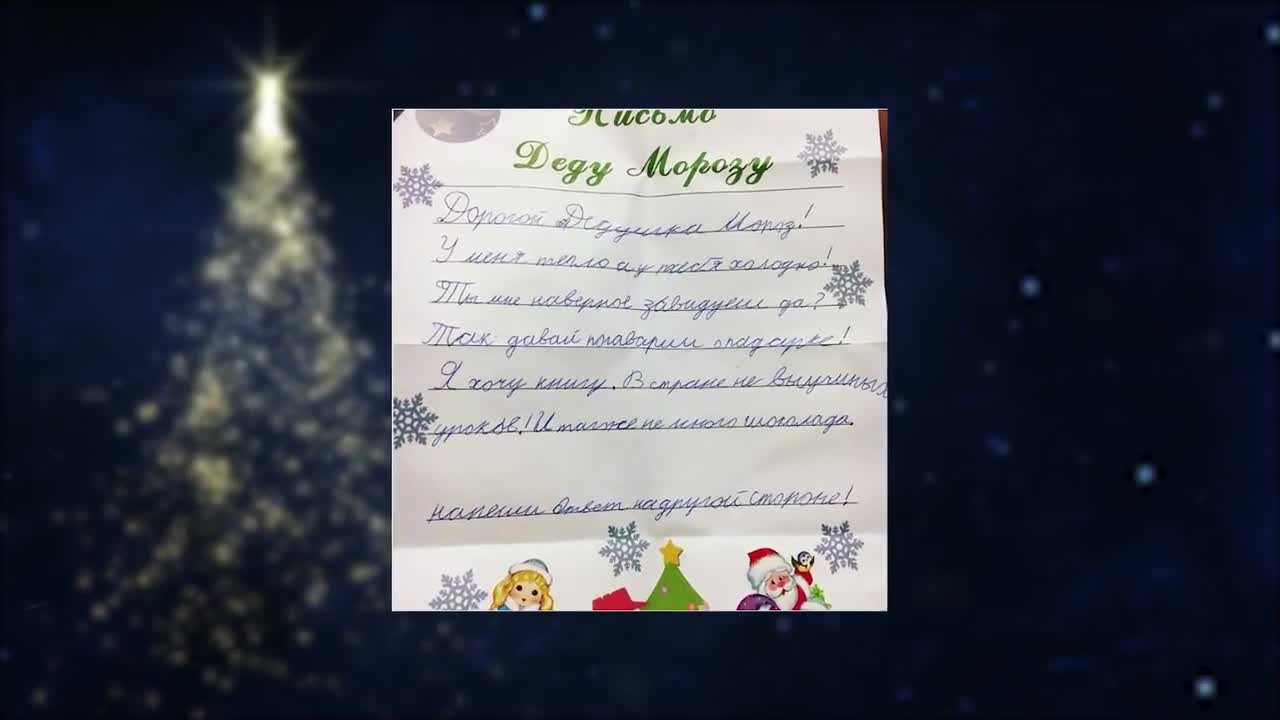 Письмо
Деду Морозу
Дорогой Дедушка Мороз!
У меня тепло а у тебя холодно!
Ты мне наверное завидуеш да?
Так давай пагаварим о падарке!
Я хочу книгу. В стране не выучиных
уроков! И также не много шоголада.
напеши ответ на другой стороне!